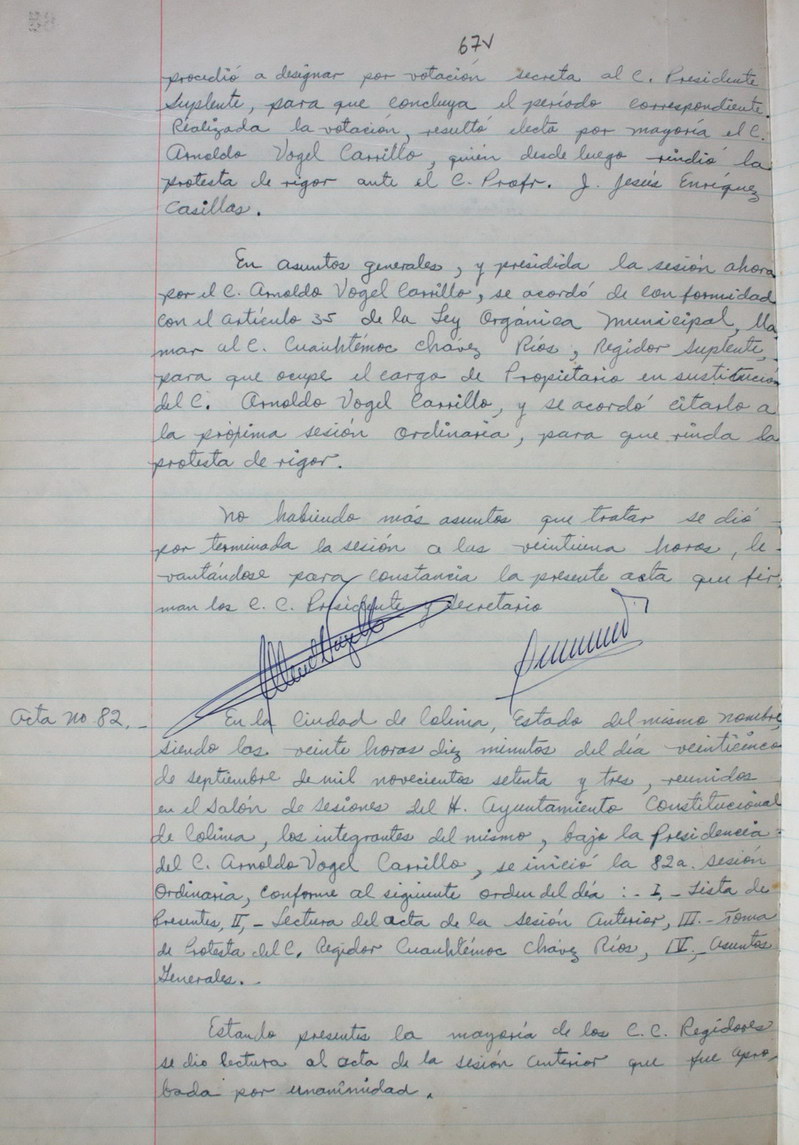 67v
procedió a designar por votación secreta al C. Presidente
Suplente, para que concluya el período correspondiente.
Realizada la votación, resultó electo por mayoría el C.
Arnoldo Vogel Carrillo, quién desde luego rindió la
protesta de rigor ante el C. Profr. J. Jesús Enríquez
Casillas.
En asuntos generales, y presidida la sesión ahora
por el C. Arnoldo Vogel Carrillo, se acordó de conformidad
con el artículo 35 de la Ley Orgánica Municipal, lla
mar al C. Cuauhtémoc Chávez Ríos, Regidor Suplente,
para que ocupe el cargo de Propietario en sustitución
del C. Arnoldo Vogel Carrillo, y se acordó citarlo a
la próxima sesión ordinaria, para que rinda la
protesta de rigor.
No habiendo más asuntos que tratar se dió
por terminada la sesión a las veintiuna horas, le-
vantándose para constancia la presente acta que fir-
man los C. C. Presidente y Secretario
Acta no 82.- En la Ciudad de Colima, Estado del mismo nombre,
siendo las veinte horas diez minutos del día veinticinco
de septiembre de mil novecientos setenta y tres, reunidos
en el Salón de Sesiones del H. Ayuntamiento Constitucional
de Colima, los integrantes del mismo, bajo la Presidencia
del C. Arnoldo Vogel Carrillo, se inició la 82a. Sesión
Ordinaria, conforme al siguiente orden del día :- I.- Lista de
Presentes, II.- Lectura del acta de la sesión anterior, III.- Toma
de Protesta del C. Regidor Cuauhtémoc Chávez Ríos, IV.- Asuntos
Generales.-
Estando presentes la mayoría de los C.C. Regidores
se dio lectura al acta de la sesión anterior que fue apro-
bada por unanimidad.